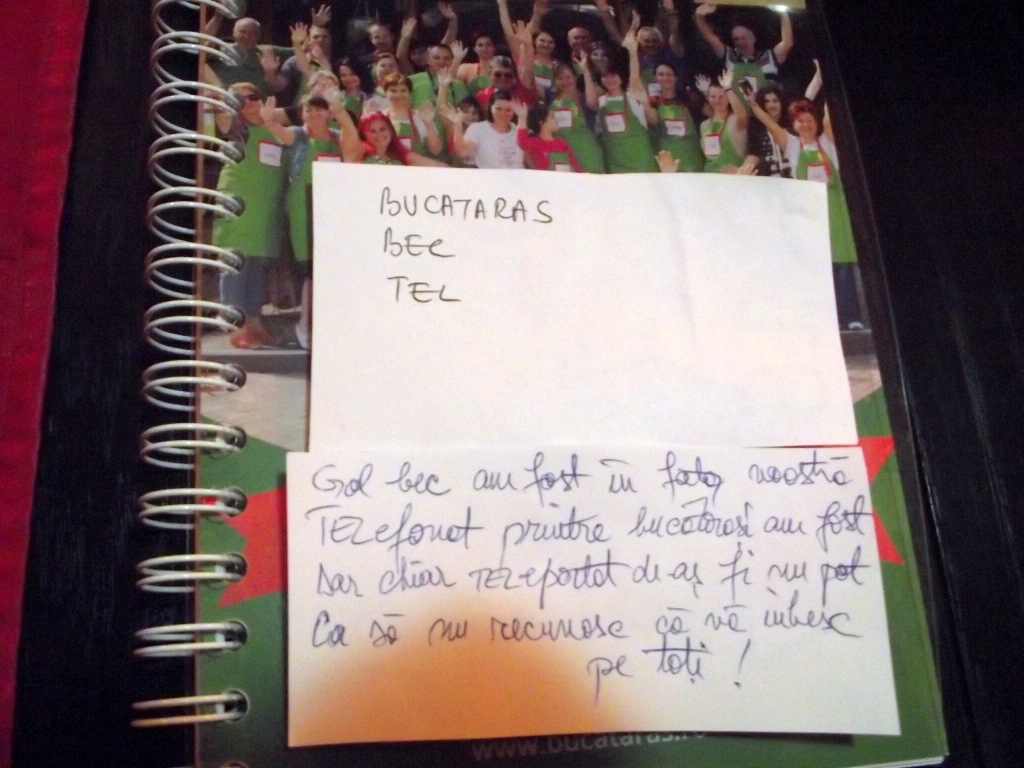 BUCATARAS
BEC
TEL
Gol bec am fost în fața voastră
TELefonat printre bucătărași am fost
Dar chiar TELeportat de-aș fi nu pot
Ca să nu recunosc că vă iubesc
pe toți!
www.bucataras.ro